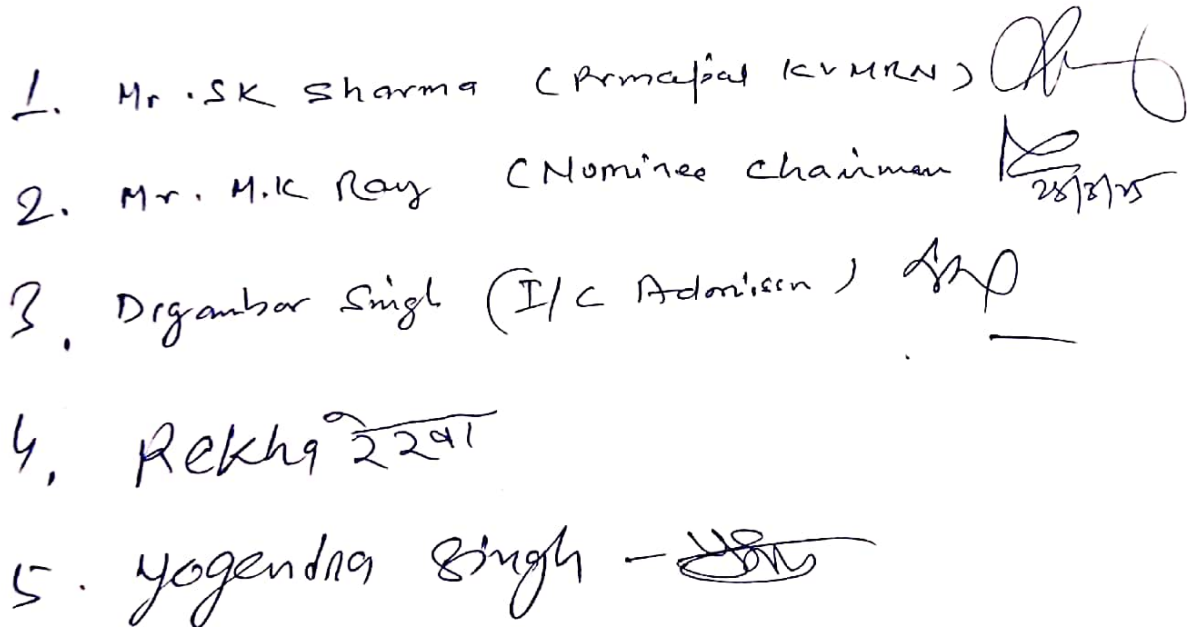 1. Mr. SK Sharma (Principal KVMRN)
2. Mr. M.K Ray (Nominee Chairman 28/3/25
3. Digambar Singh (I/C Admission)
4. Rekha रेखा
5. Yogendra Singh -